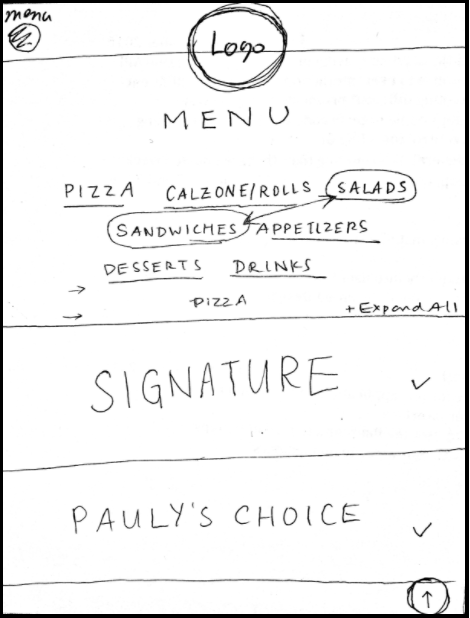 menu
Logo
MENU
PIZZA CALZONE/ROLLS SALADS
SANDWICHES APPETIZERS
DESSERTS DRINKS
PIZZA
+ Expand All
SIGNATURE
PAULY'S CHOICE